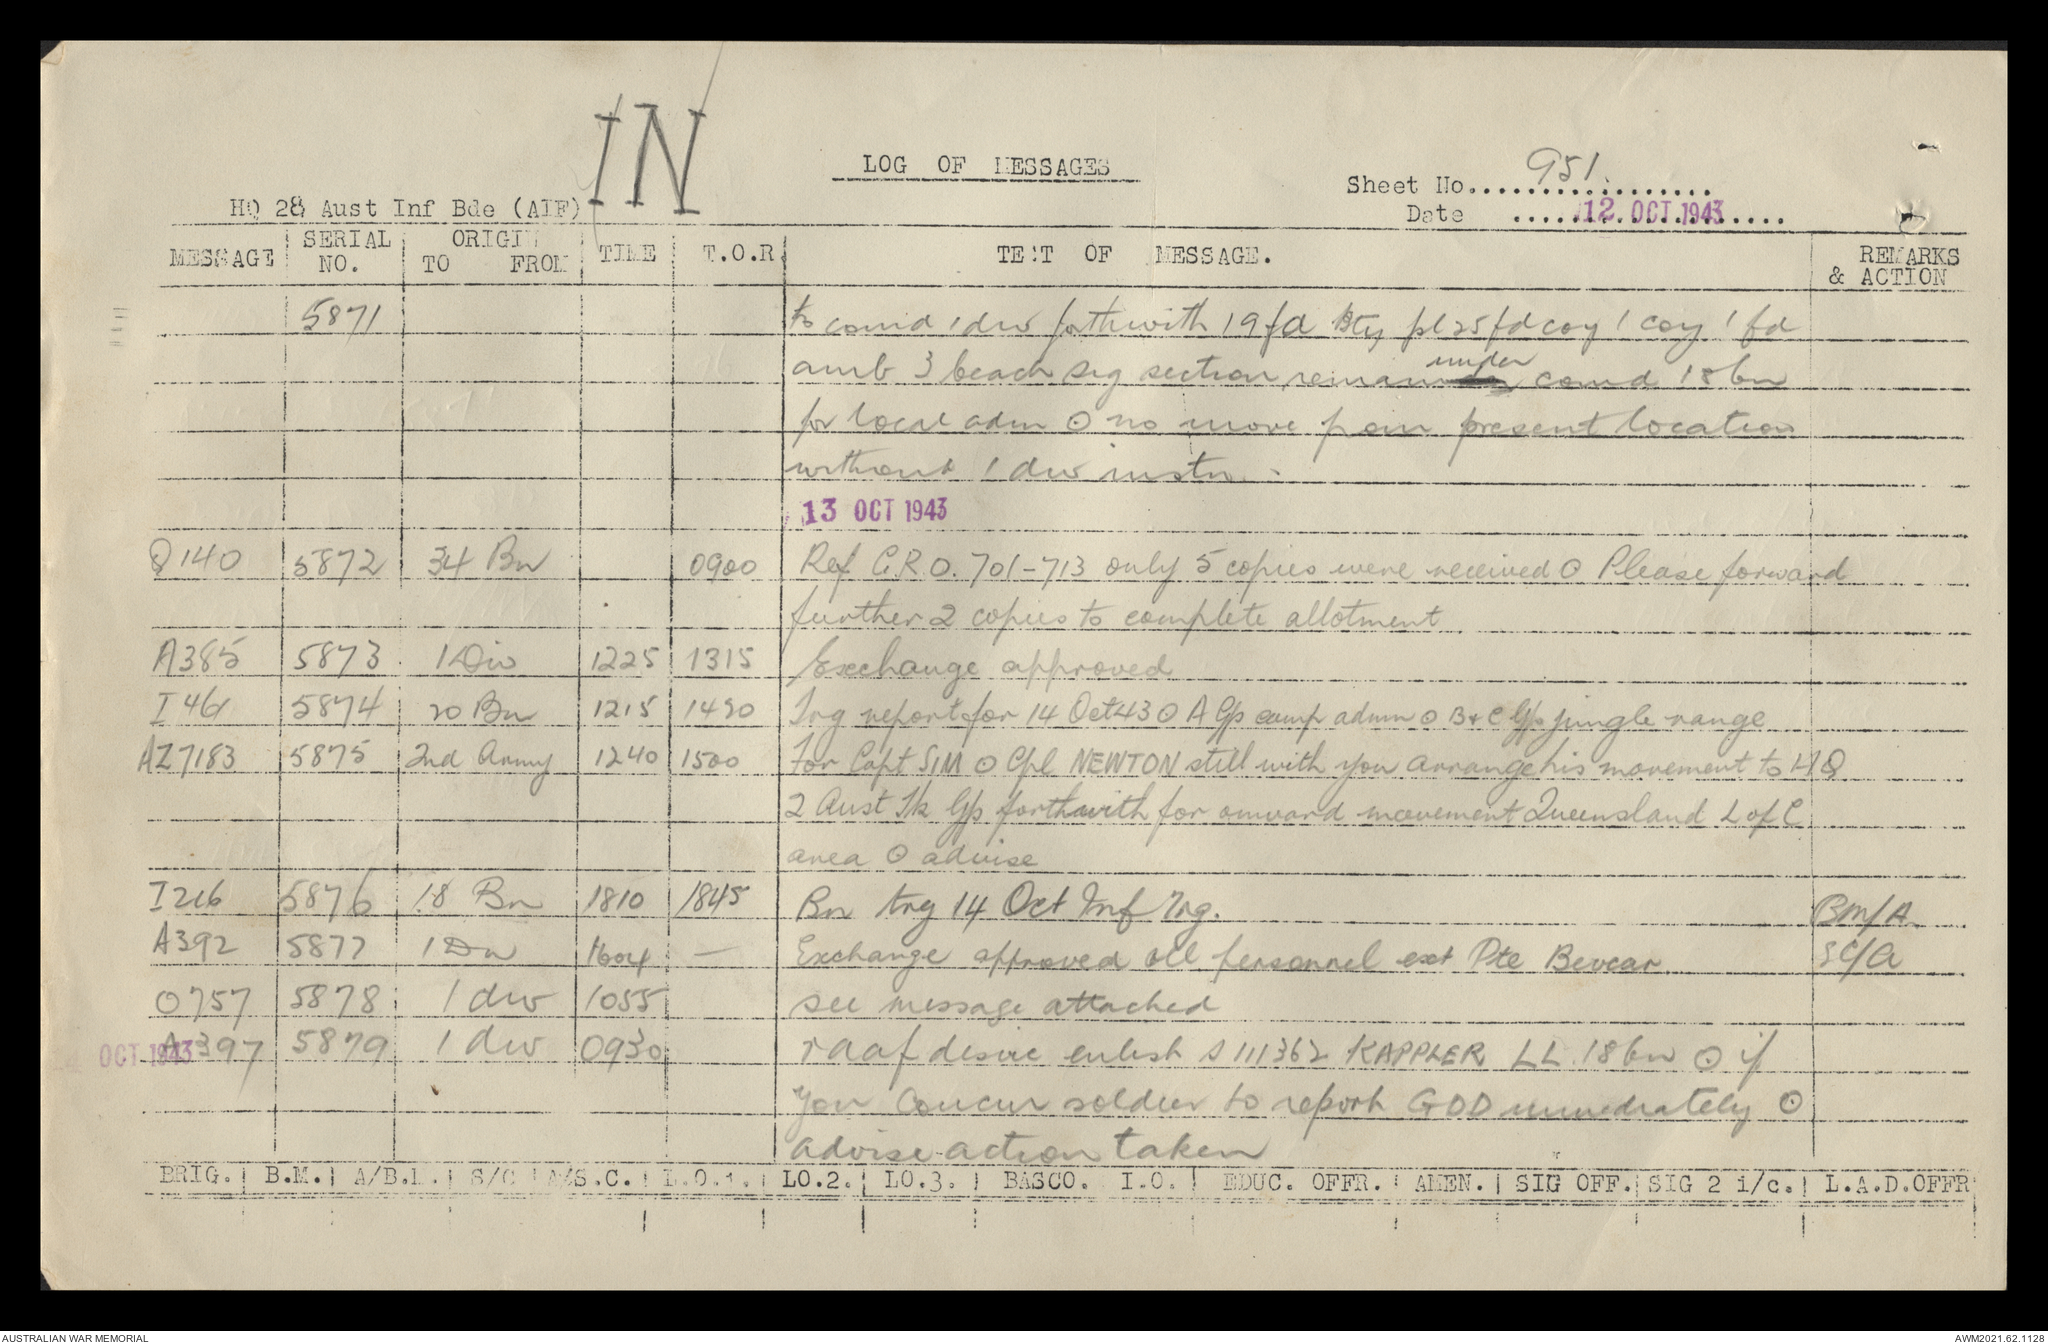 IN
LOG OF MESSAGES
Sheet No. 951.
HQ 28 Aust Inf Bde (AIF)
Date 12 OCT 1943
MESSAGE SERIAL NO. ORIGIN TO FROM TIME T.O.R. TEXT OF MESSAGE. REMARKS & ACTION
5871 to comd 1 div forthwith 19 fd Bty pl 25 fd coy 1 coy 1 fd
amb 3 beach sig section remain under comd 18 bn
for local adm O no move from present location
without 1 div instns.
13 OCT 1943
Q140 5872 34 Bn 0900 Ref G.R.O. 701-713 only 5 copies were received O Please forward
further 2 copies to complete allotment
A385 5873 1 Div 1225 1315 Exchange approved
I 461 5874 20 Bn 1215 1420 Trg report for 14 Oct 43 O A Gp camp admn O B & C Gps jungle range
AZ7183 5875 2nd Army 1240 1500 For Capt SIM O Cpl NEWTON still with you arrange his movement to HQ
2 Aust Tk Gp forthwith for onward movement Queensland L of C
area O advise
I 216 5876 18 Bn 1810 1845 Bn trg 14 Oct Inf Trg. BM/A
A392 5877 1 Div 1604 — Exchange approved all personnel ext Pte SC/A
O757 5878 1 div 1055 see message attached
OCT 1943 A397 5879 1 div 0930 raaf desire enlist S111362 KAPPLER LL 18 bn O if
you concur soldier to report GDD immediately O
advise action taken
BRIG. B.M. A/B.M. S/C A/S.C. L.O.1. LO.2. LO.3. BASCO. I.O. EDUC. OFFR. AMEN. SIG OFF. SIG 2 i/c. L.A.D.OFFR
AUSTRALIAN WAR MEMORIAL AWM2021.62.1128